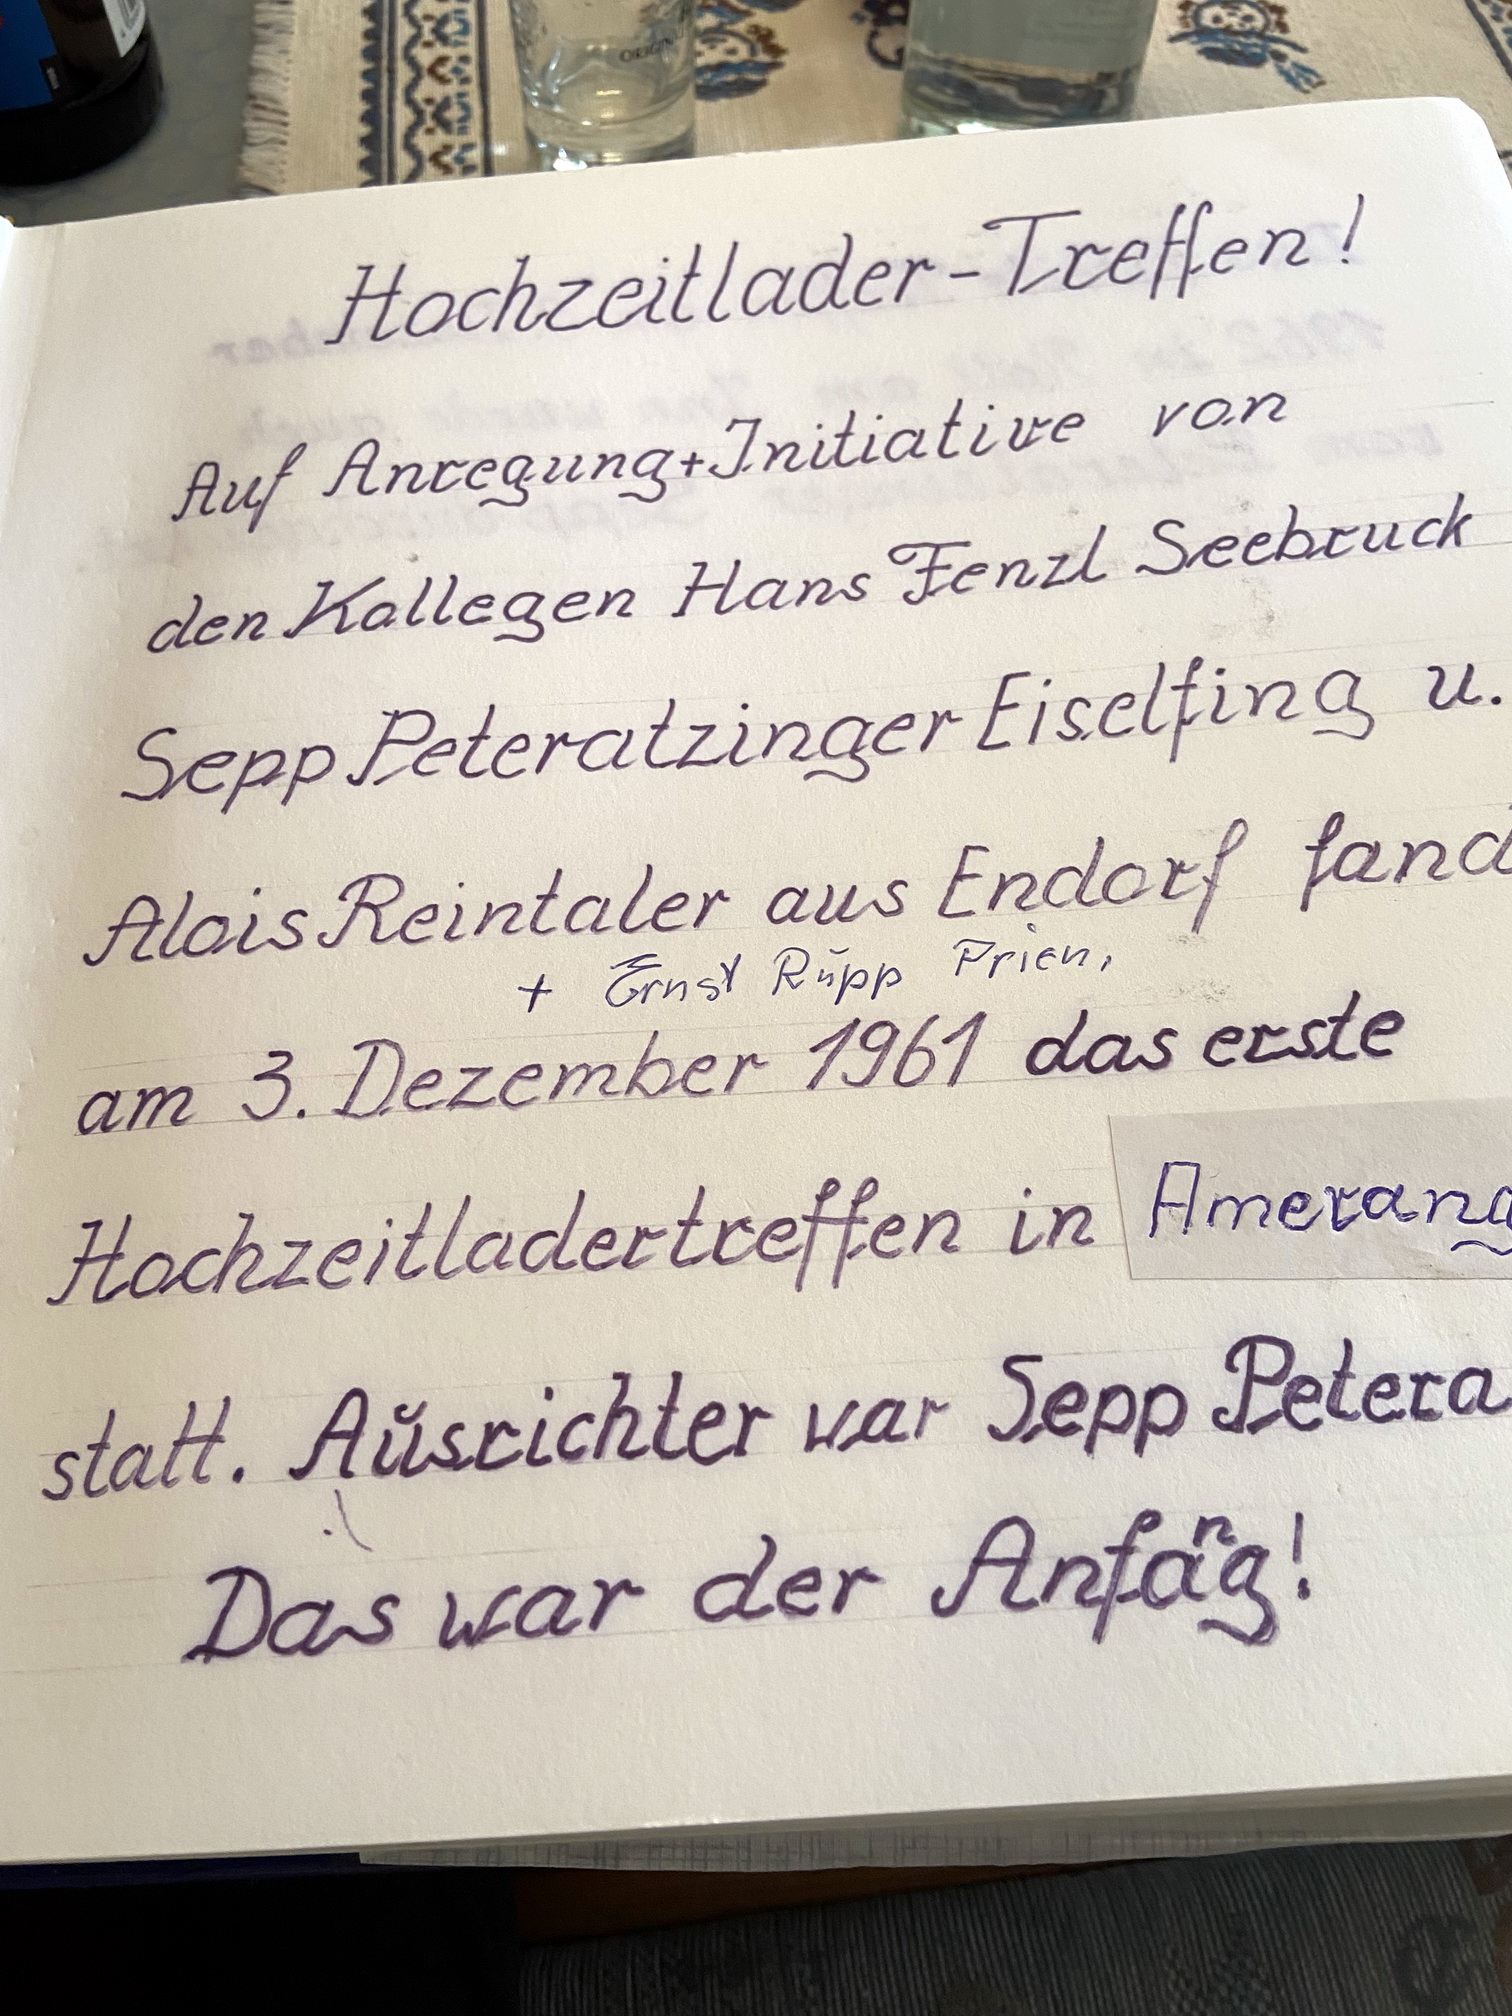 Hochzeitlader-Treffen!
Auf Anregung+Initiative von
den Kollegen Hans Fenzl Seebruck
Sepp Peteratzinger Eiselfing u.
Alois Reintaler aus Endorf fand
+ Ernst Rŭpp Prien,
am 3. Dezember 1961 das erste
Hochzeitladertreffen in Amerang
statt. Aŭsrichter war Sepp Petera
Das war der Anfang!